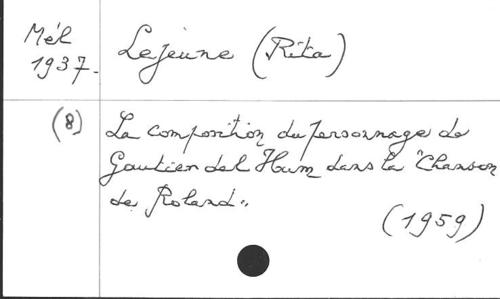 Mél
1937.
Lejeune (Rita)
(8)
La composition du personnage de
Gautier del Hum dans la "Chanson
de Roland".
(1959)